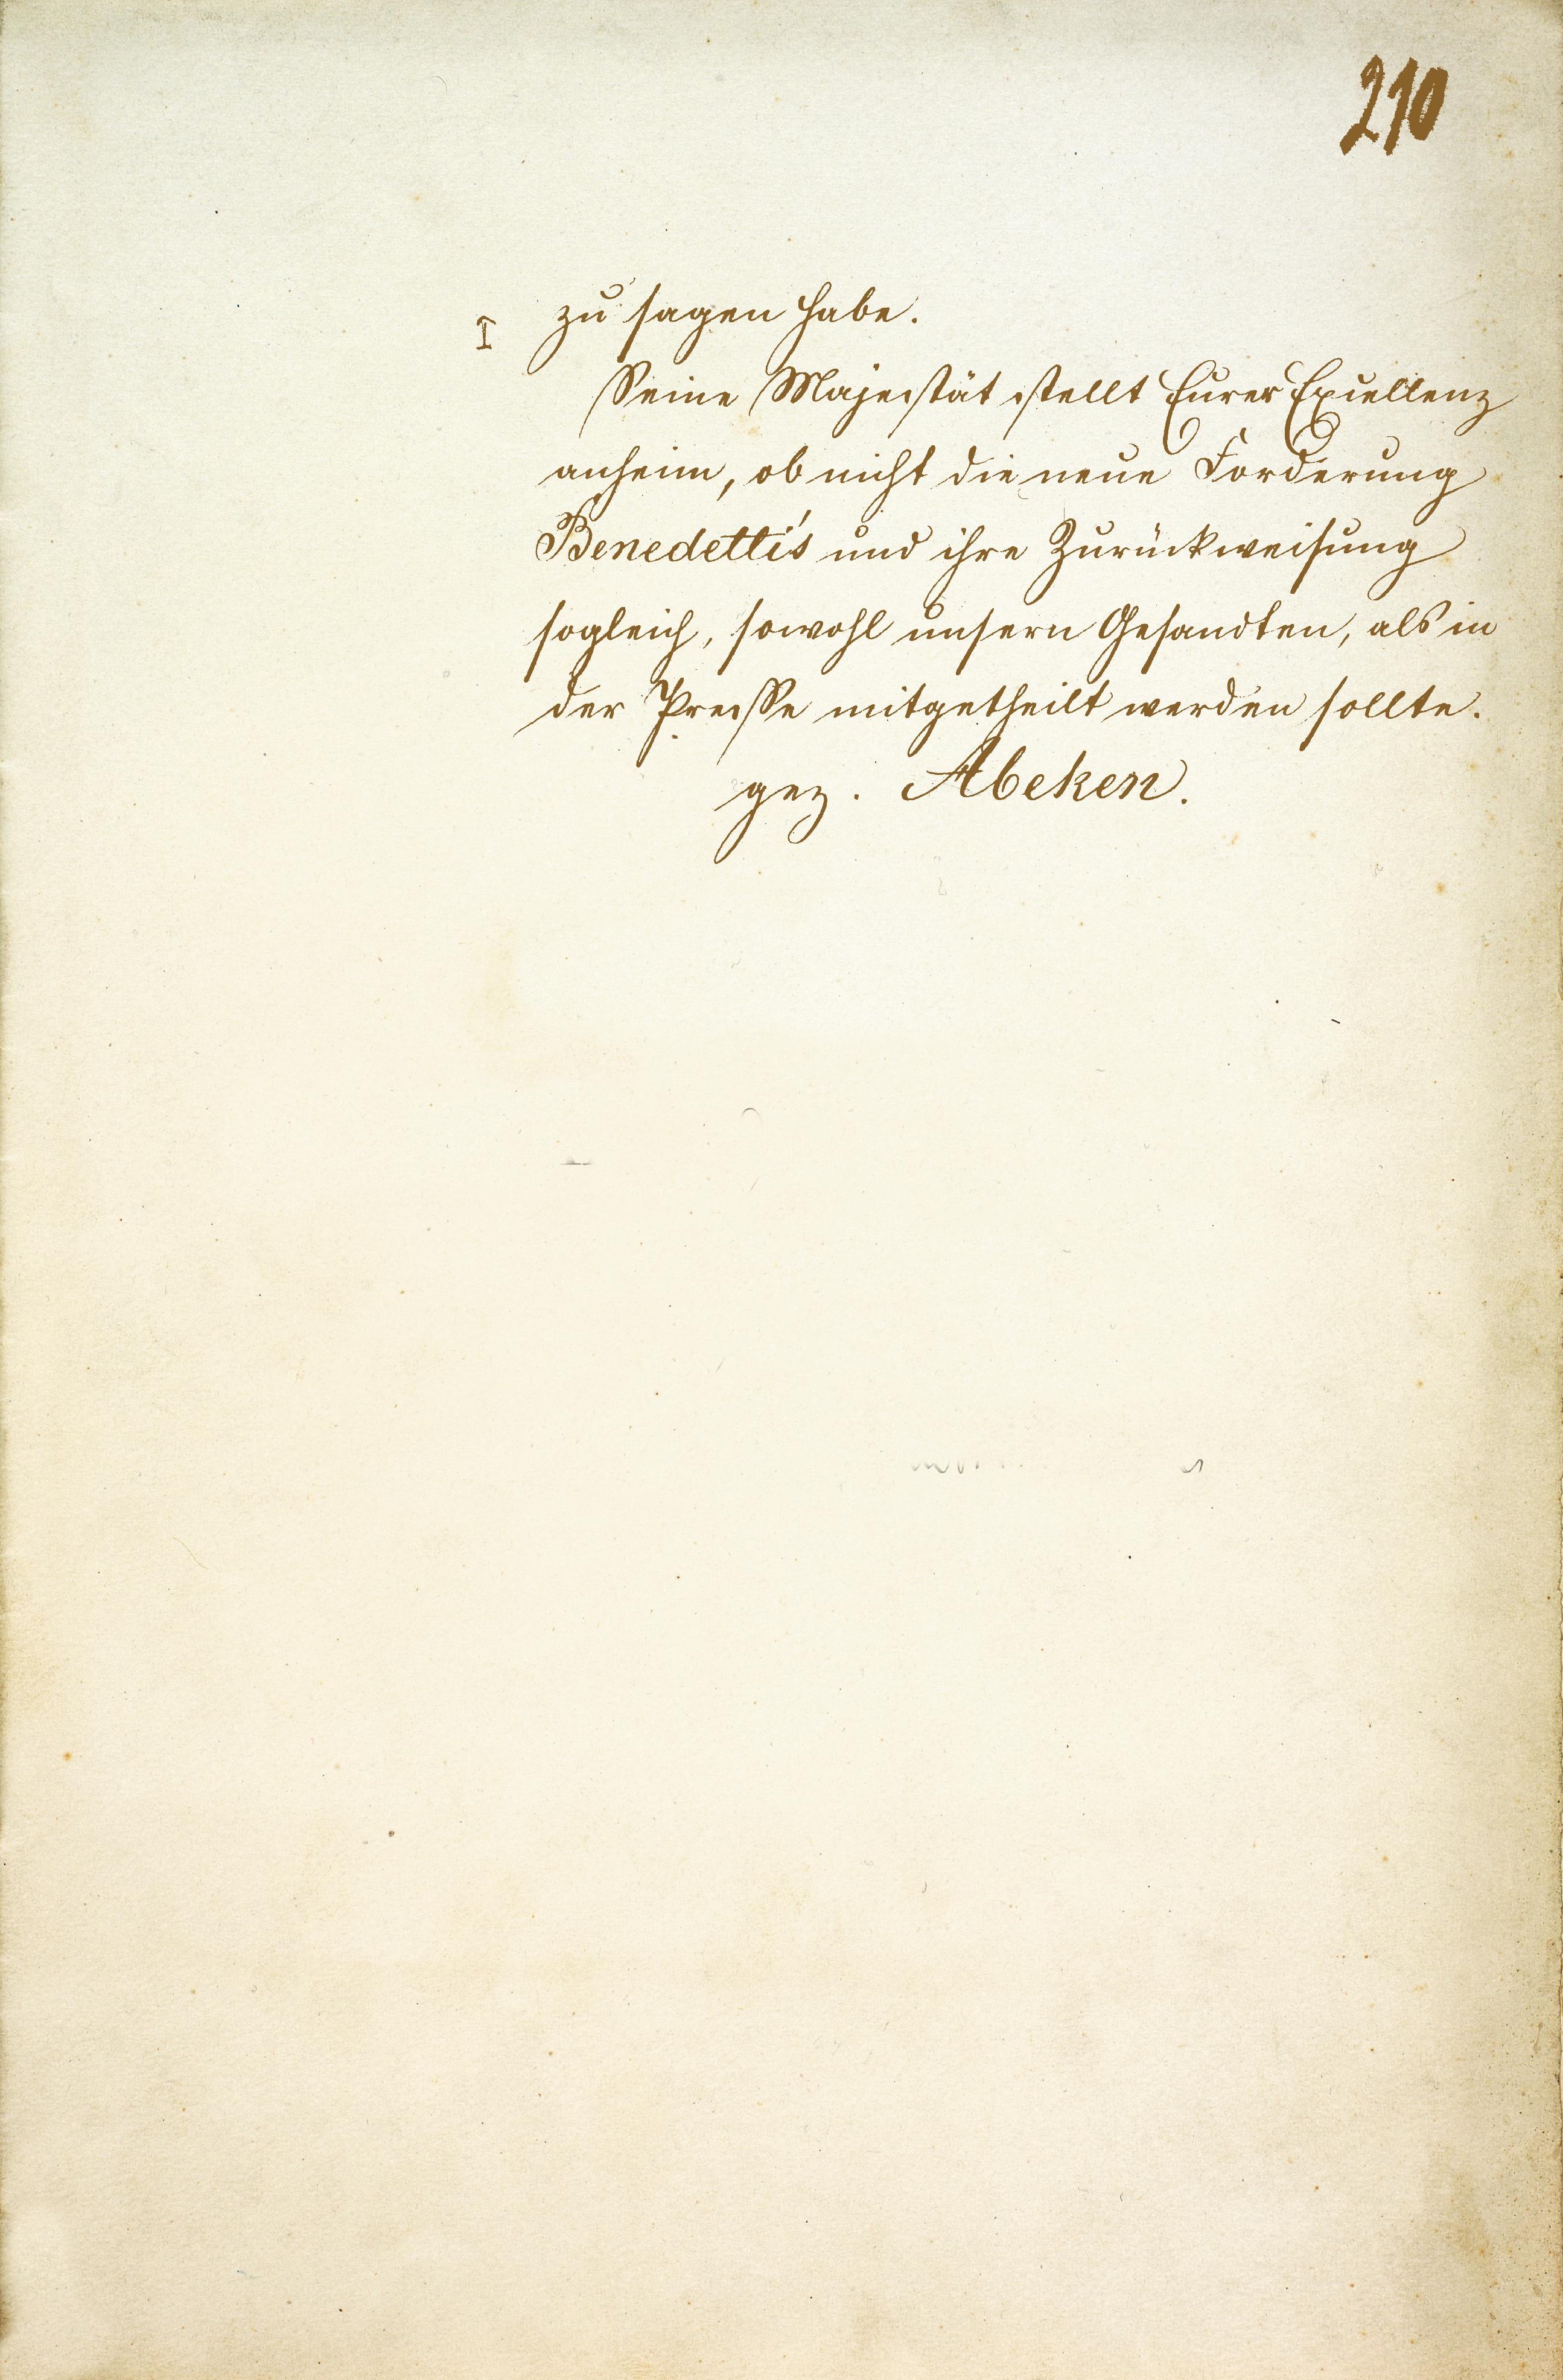 210
zu sagen habe.
Seine Majestät stellt Eurer Excellenz
anheim, ob nicht die neue Forderung
Benedetti's und ihre Zurückweisung
sogleich, sowohl unsern Gesandten, als in
der Presse mitgetheilt werden sollte.
gez. Abeken.